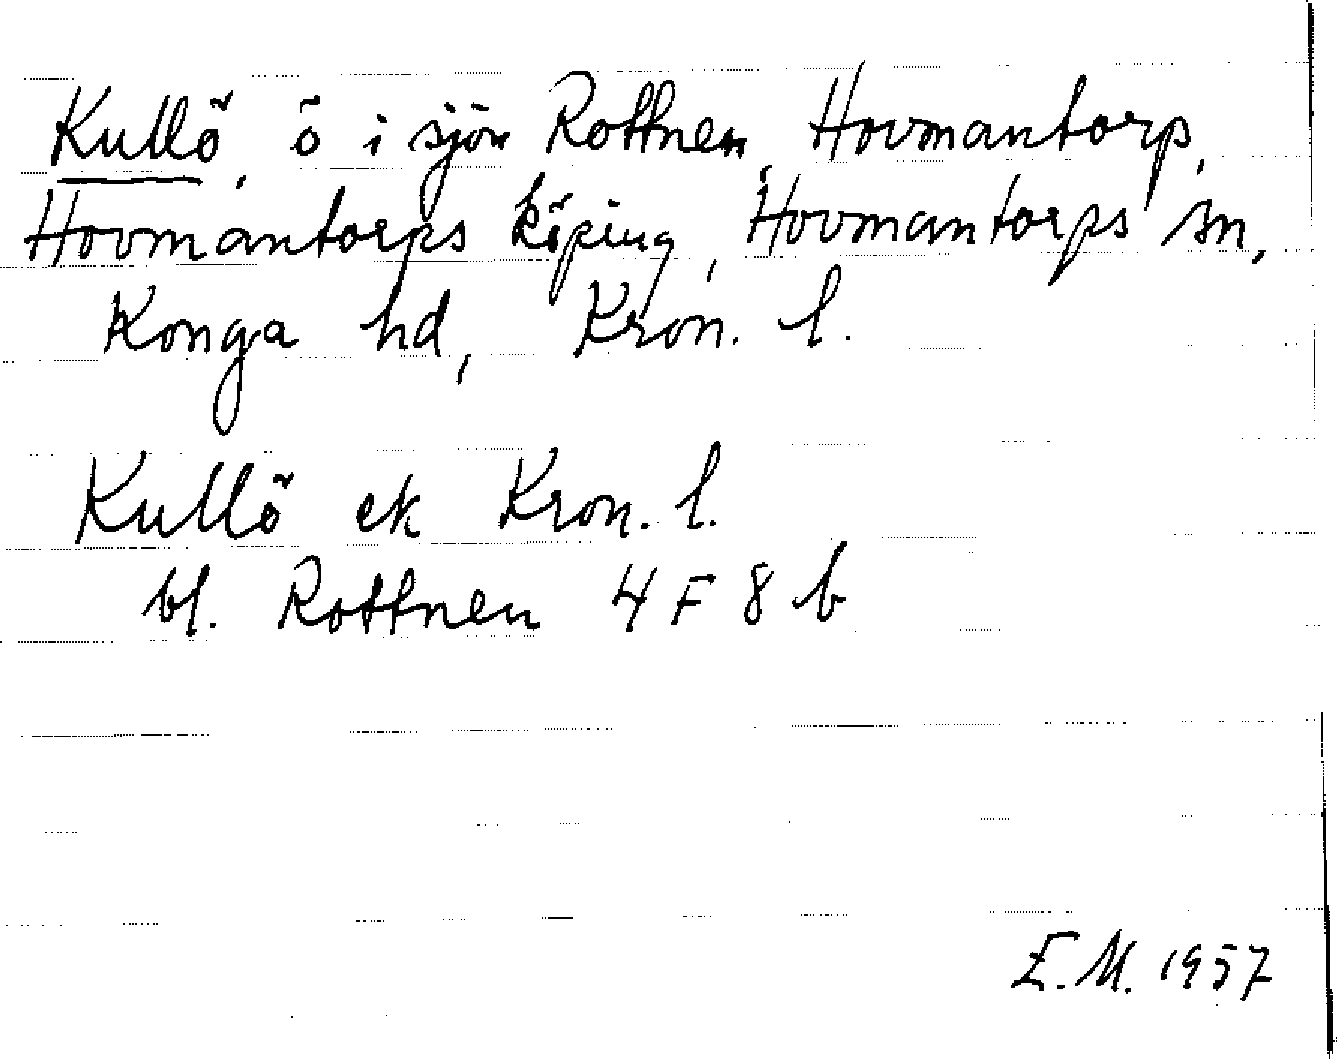 Kullö, ö i sjön Rottnen, Hovmantorp,
Hovmantorps köping, Hovmantorps sn,
Konga hd, Kron. l.
Kullö ek Kron. l.
bl. Rottnen 4 F 8 b
E.M. 1957